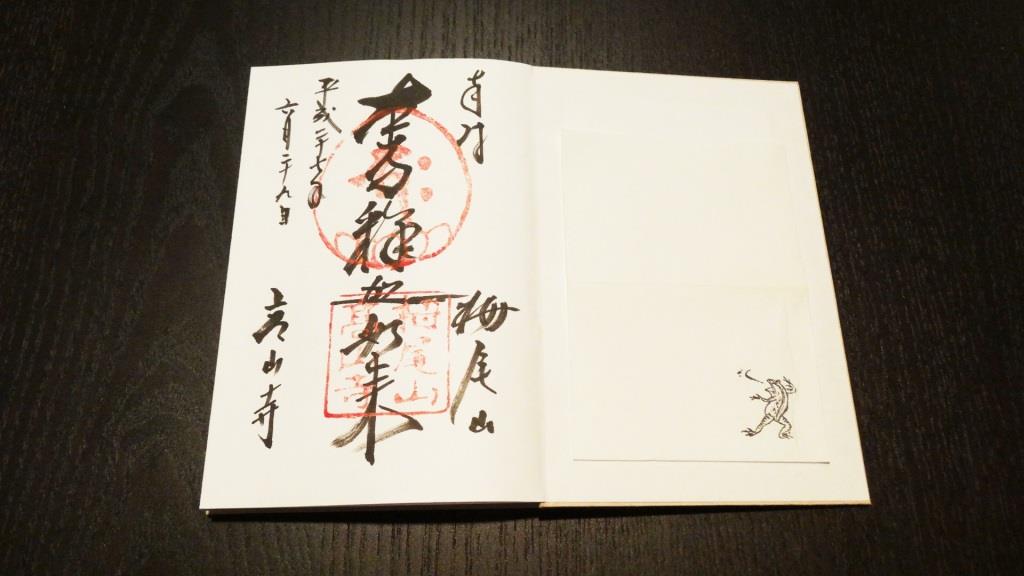 奉拝
栂尾山
釋迦如来
平成二十七年
六月二十九日
高山寺
栂尾山
高山寺